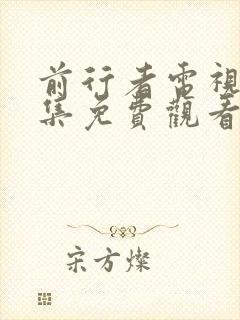 前行者電視
集免費觀看
宋方燦